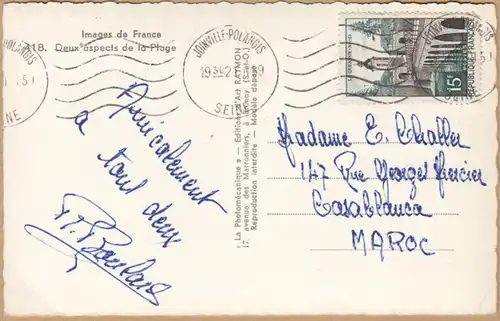 Images de France
118. Deux aspects de la Plage
JOINVILLE-POLANGIS
SEINE
15F
REPUBLIQUE FRANÇAISE
« La Photomécanique » - Editions d'Art RAYMON
17, avenue des Marronniers, à (S.-et-O.)
Reproduction interdite - Modèle déposé
Amicalement
a tout deux
Madame E. Challer
147 Rue Georges Mercier
Casablanca
MAROC